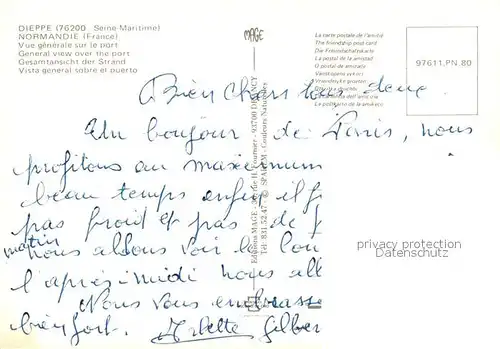 DIEPPE (76200 Seine-Maritime)
NORMANDIE (France)
Vue générale sur le port
General view over the port
Gesamtansicht der Strand
Vista general sobre el puerto
MAGE
La carte postale de l'amitié
The friendship post card
Die Freundschaftskarte
La postal de la amistad
O postal de amizade
97611.PN.80
Editions MAGE - H. Fournier - 93700 DRANCY
Tél. 831.52.47 - © SPADEM - Couleurs Naturelles
Bien chers tous deux
Un bonjour de Paris, nous
profitons au maximum
beau temps enfin il f
pas froid et pas de p
matin
nous allons voir la
l'après-midi nous all
Nous vous embrass
bien fort. Arlette Gilber
privacy protection
Datenschutz